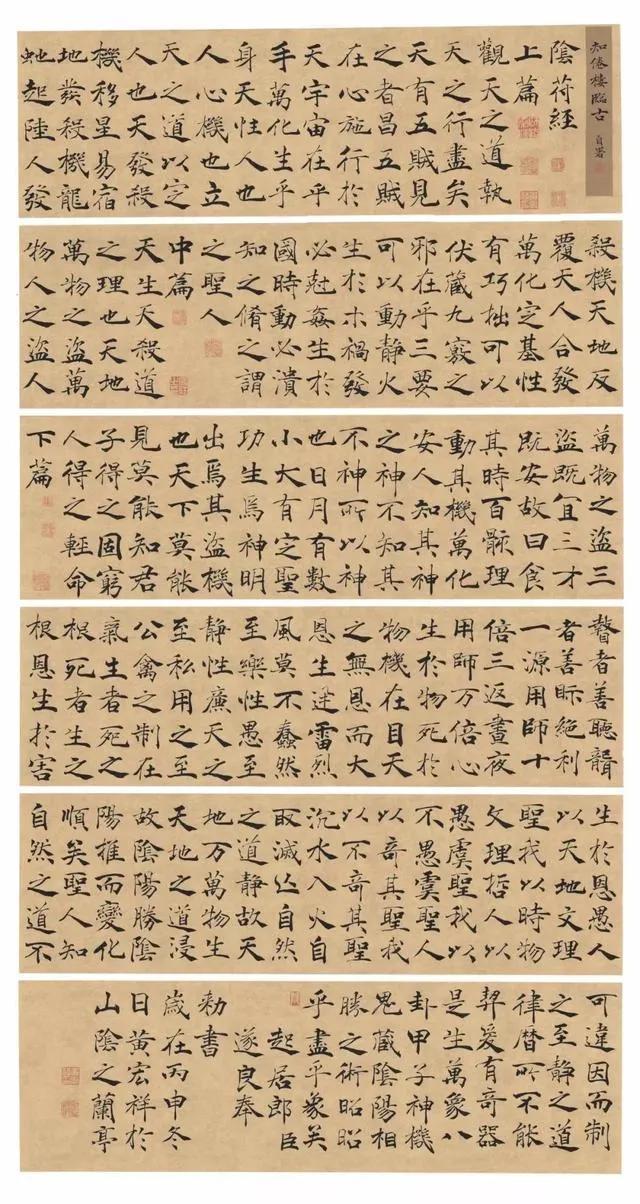 知倦樓臨古 自署
陰苻經
上篇
觀天之道執
天之行盡矣
天有五賊見
之者昌五賊
在心施行於
天宇宙在乎
手萬化生乎
身天性人也
人心機也立
天之道以定
人也天發殺
機移星易宿
地發殺機龍
虵起陸人發
殺機天地反
覆天人合發
萬化定基性
有巧拙可以
伏藏九竅之
邪在乎三要
可以動靜火
生於木禍發
必尅姦生於
國時動必潰
知之脩之謂
之聖人
中篇
天生天殺道
之理也天地
萬物之盜萬
物人之盜人
萬物之盜三
盜既宜三才
既安故曰食
其時百骸理
動其機萬化
安人知其神
之神不知其
不神所以神
也日月有數
小大有定聖
功生焉神明
出焉其盜機
也天下莫能
見莫能知君
子得之固窮
人得之輕命
下篇
瞽者善聽聾
者善眎絕利
一源用師十
倍三返晝夜
用師万倍心
生於物死於
物機在目天
之無恩而大
恩生迅雷烈
風莫不蠢然
至樂性愚至
靜性廉天之
至私用之至
公禽之制在
氣生者死之
根死者生之
根恩生於害
生於恩愚人
以天地文理
聖我以時物
文理哲人以
愚虞聖我以
不愚虞聖人
以奇其聖我
以不奇其聖
沉水入火自
取滅亡自然
之道靜故天
地万萬物生
天地之道浸
故陰陽勝陰
陽推而變化
順矣聖人知
自然之道不
可違因而制
之至靜之道
律曆所不能
契爰有奇器
是生萬象八
卦甲子神機
鬼藏陰陽相
勝之術昭昭
乎盡乎象矣
起居郎臣
遂良奉
勅書
歲在丙申冬
日黃宏祥於
山陰之蘭亭